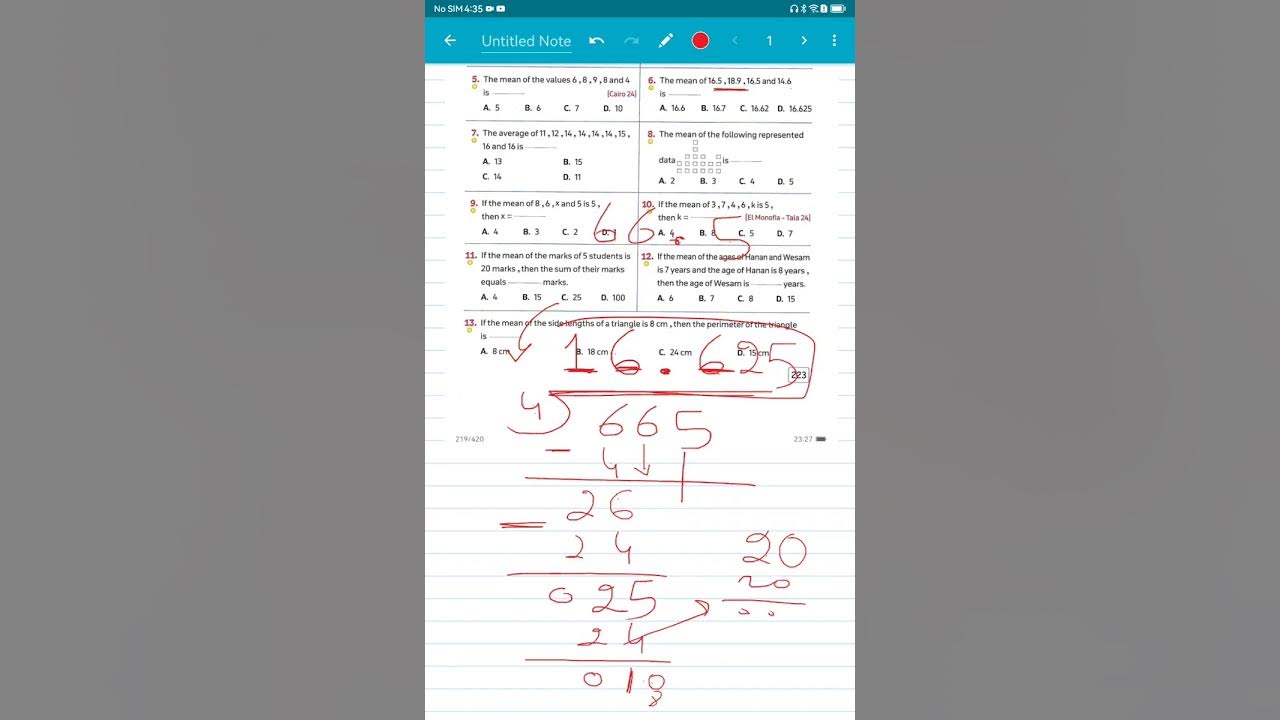 No SIM 4:35
Untitled Note
1
5. The mean of the values 6 , 8 , 9 , 8 and 4
is
(Cairo 24)
A. 5 B. 6 C. 7 D. 10
6. The mean of 16.5 , 18.9 , 16.5 and 14.6
is
A. 16.6 B. 16.7 C. 16.62 D. 16.625
7. The average of 11 , 12 , 14 , 14 , 14 , 14 , 15 ,
16 and 16 is
A. 13 B. 15
C. 14 D. 11
8. The mean of the following represented
data is
A. 2 B. 3 C. 4 D. 5
9. If the mean of 8 , 6 , x and 5 is 5 ,
then x =
A. 4 B. 3 C. 2 D.
10. If the mean of 3 , 7 , 4 , 6 , k is 5 ,
then k =
(El Monofia - Tala 24)
A. 4 B. 8 C. 5 D. 7
66.5
11. If the mean of the marks of 5 students is
20 marks , then the sum of their marks
equals marks.
A. 4 B. 15 C. 25 D. 100
12. If the mean of the ages of Hanan and Wesam
is 7 years and the age of Hanan is 8 years ,
then the age of Wesam is years.
A. 6 B. 7 C. 8 D. 15
13. If the mean of the side lengths of a triangle is 8 cm , then the perimeter of the triangle
is
A. 8 cm B. 18 cm C. 24 cm D. 15 cm
16.625
223
4
665
219/420
23:27
4
26
24
20
20
025
00
24
010